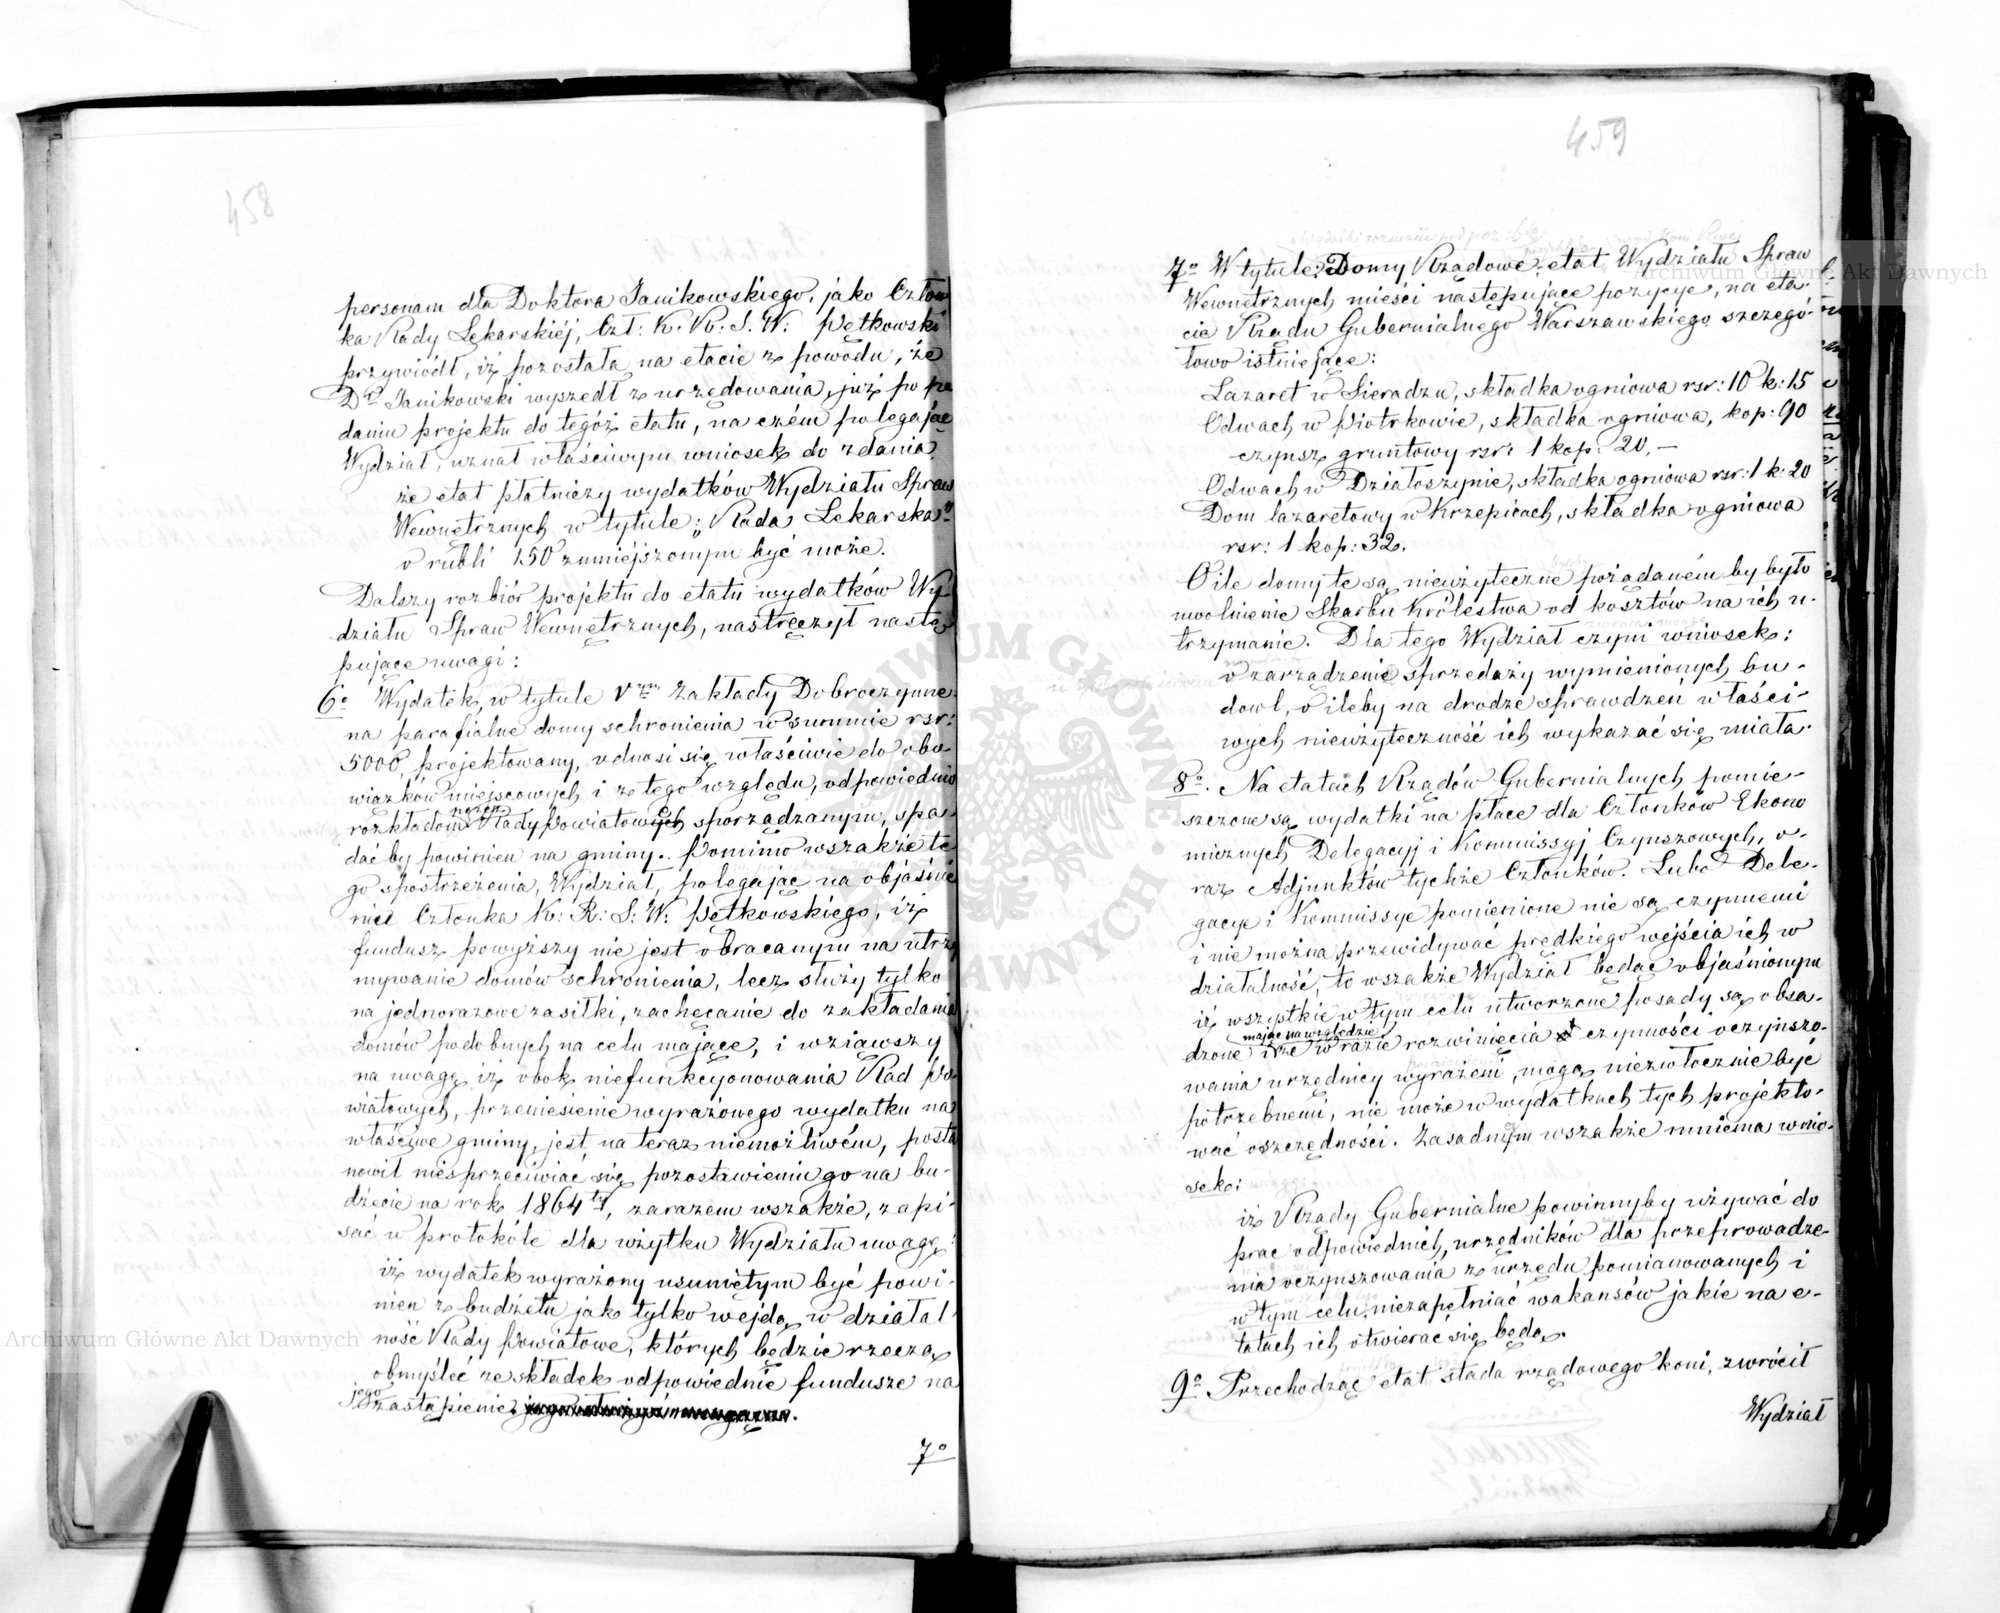 458
personam dla Doktora Janikowskiego, jako Człon
ka Rady Lekarskiej, Czł: K. R: S. W: Pętkowski
przywiódł, iż pozostała na etacie z powodu, że
Dr Janikowski wyszedł z urzędowania, już po po
daniu projektu do tegóż etatu, na czém polegając
Wydział, uznał właściwym wniosek do zdania
że etat płatniczy wydatków Wydziału Spraw
Wewnętrznych w tytule: "Rada Lekarska"
o rubli 150 zmniejszonym być może.
Dalszy rozbiór projektu do etatu wydatków Wy-
działu Spraw Wewnętrznych, nastręczył nastę
pujące uwagi:
6o Wydatek w tytule Vym Zakłady Dobroczynne
na parafialne domy schronienia w summie rsr:
5000, projektowany, odnosi się właściwie do obo-
wiązków miejscowych i z tego względu, odpowiednio
rozkładom przez Rady Powiatowe sporządzanym, spa-
dać by powinien na gminy. Pomimo wszakże te
go spostrzeżenia, Wydział, polegając na objaśnie
niu Członka K: R: S: W: Pętkowskiego, iż
fundusz powyższy nie jest obracanym na utrzy
mywanie domów schronienia, lecz służy tylko
na jednorazowe zasiłki, zachęcanie do zakładania
domów podobnych na celu mające, i wziąwszy
na uwagę iż obok niefunkcyonowania Rad Po-
wiatowych, przeniesienie wyrażonego wydatku na
właściwe gminy, jest na teraz niemożliwém, posta
nowił niesprzeciwiać się pozostawieniu go na bu-
dżecie na rok 1864ty, zarazem wszakże, zapi-
sać w protokóle dla użytku Wydziału uwagę:
iż wydatek wyrażony usuniętym być powi-
nien z budżetu jak tylko wejdą w działal-
ność Rady Powiatowe, których będzie rzeczą
obmyśleć ze składek odpowiednie fundusze na
jego zastąpienie.
7o
459
7o W tytule: Domy Rządowe, etat Wydziału Spraw
Wewnętrznych mieści następujące pozycye, na eta-
cie Rządu Gubernialnego Warszawskiego szczegó-
łowo istniejące:
Lazaret w Sieradzu, składka ogniowa rsr: 10 k: 15
Odwach w Piotrkowie, składka ogniowa, kop: 90
czynsz gruntowy rsr: 1 kop: 20,—
Odwach w Działoszynie, składka ogniowa rsr: 1 k: 20
Dom lazaretowy w Krzepicach, składka ogniowa
rsr: 1 kop: 32.
O ile domy te są nieużyteczne pożądaném by było
uwolnienie Skarbu Królestwa od kosztów na ich u-
trzymanie. Dla tego Wydział czyni wniosek:
o zarządzenie sprzedaży wymienionych bu-
dowl, o ileby na drodze sprawdzeń właści-
wych nieużyteczność ich wykazać się miała.
8o. Na etatach Rządów Gubernialnych pomie-
szczone są wydatki na płace dla Członków Ekono
micznych Delegacyj i Kommissyj Czynszowych, o-
raz Adjunktów tychże Członków. Lubo Dele-
gacye i Kommissye pomienione nie są czynnemi
i nie można przewidywać prędkiego wejścia ich w
działalność, to wszakże Wydział będąc objaśnionym
iż wszystkie w tym celu utworzone posady są obsa-
mając na względzie
dzone i że w razie rozwinięcia czynności oczynszo-
wania urzędnicy wyrażeni, mogą niezwłocznie być
potrzebnemi, nie może w wydatkach tych projekto-
wać oszczędności. Zasadnym wszakże mniema wnio-
sek:
iż Rządy Gubernialne powinnyby używać do
prac odpowiednich, urzędników dla przeprowadze-
nia oczynszowania z urzędu pomianowanych i
w tym celu, niezapełniać wakansów jakie na e-
tatach ich otwierać się będą.
9o Przechodząc etat stada rządowego koni, zwrócił
Wydział
Archiwum Główne Akt Dawnych
Archiwum Główne Akt Dawnych
ARCHIWUM GŁÓWNE AKT DAWNYCH